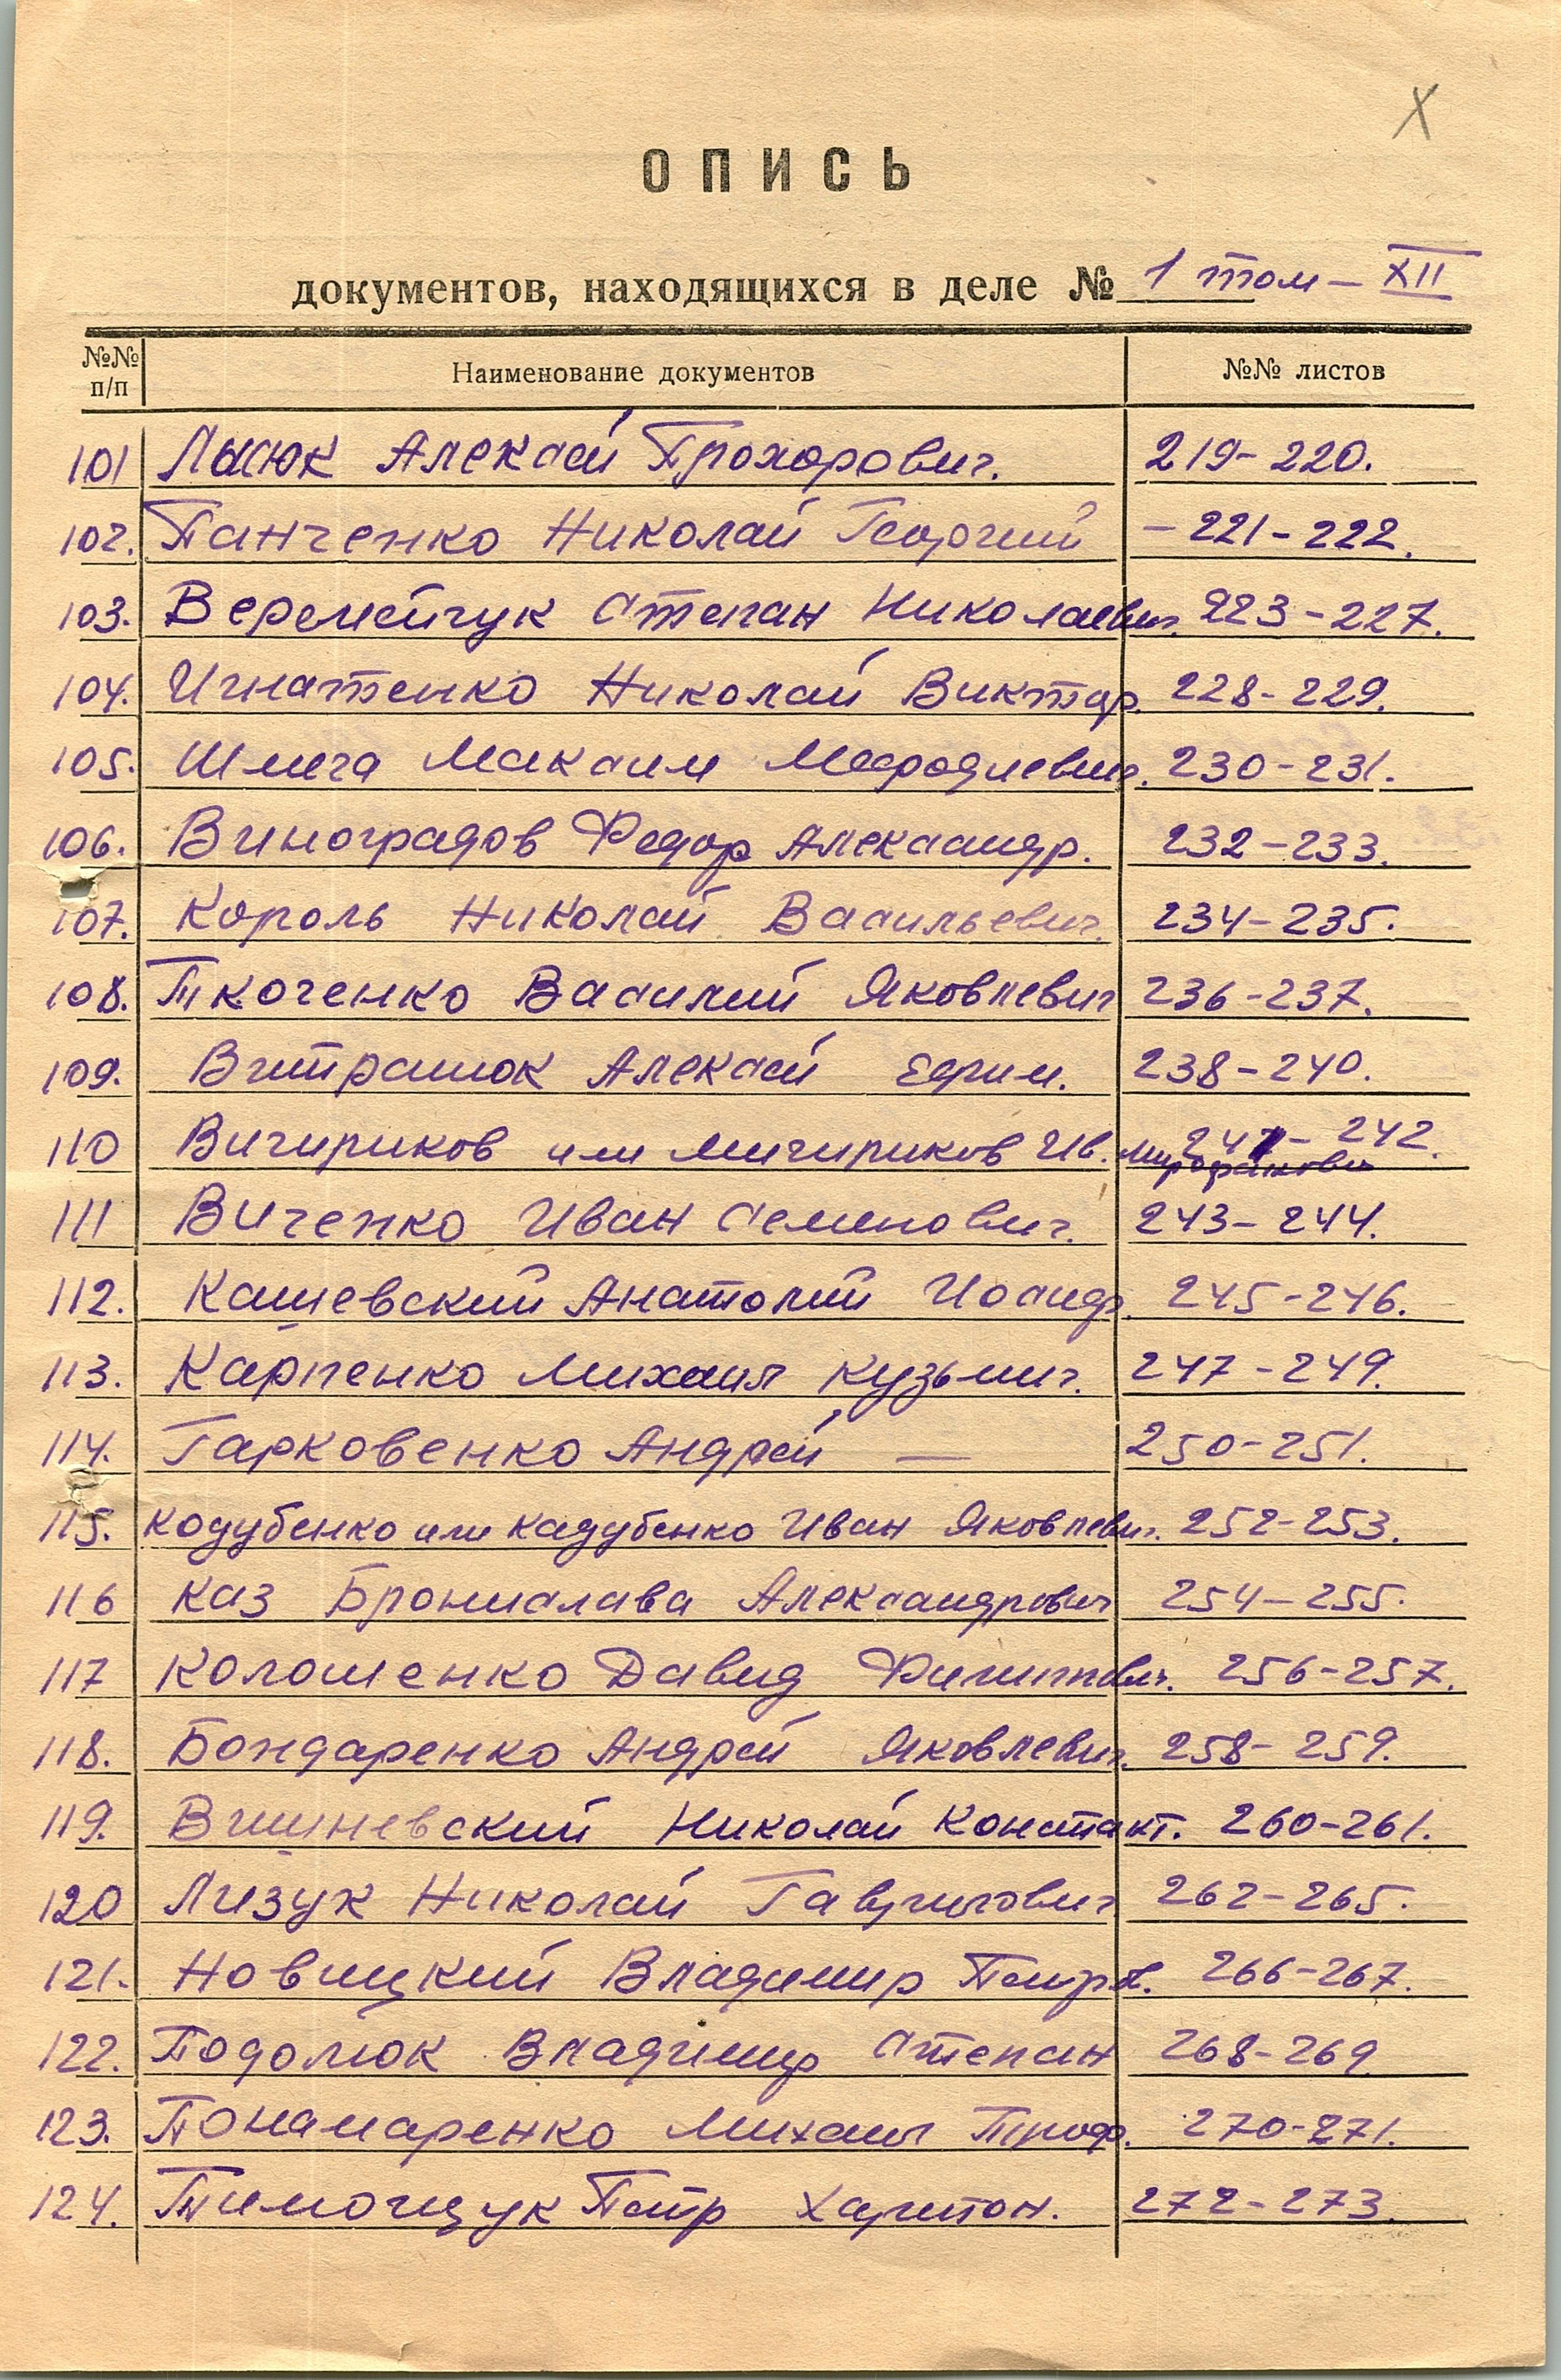 Х
ОПИСЬ
документов, находящихся в деле № 1 том – XII
№№ п/п Наименование документов №№ листов
101 Лысюк Алексей Прохорович. 219-220.
102. Панченко Николай Георгий – 221-222.
103. Веремейчук Степан Николаевич. 223-227.
104. Игнатенко Николай Виктор. 228-229.
105. Шмига Максим Мефодиевич. 230-231.
106. Виноградов Федор Александр. 232-233.
107. Король Николай Васильевич. 234-235.
108. Ткоченко Василий Яковлевич 236-237.
109. Витранюк Алексей Ефим. 238-240.
110 Вичириков или Мичириков Ив. 241-242.
Мирофанович
111 Виченко Иван Семенович. 243-244.
112. Кашевский Анатолий Иосиф. 245-246.
113. Карпенко Михаил Кузьмич. 247-249.
114. Гарковенко Андрей — 250-251.
115. Кодубенко или Кадубенко Иван Яковлевич. 252-253.
116 Каз Бронислава Александрович 254-255.
117 Колошенко Давид Филиппович. 256-257.
118. Бондаренко Андрей Яковлевич. 258-259.
119. Вишневский Николай Констант. 260-261.
120 Лизук Николай Гаврилович 262-265.
121. Новицкий Владимир Петров. 266-267.
122. Подолюк Владимир Степан 268-269
123. Понамаренко Михаил Троф. 270-271.
124. Тимощук Петр Харитон. 272-273.